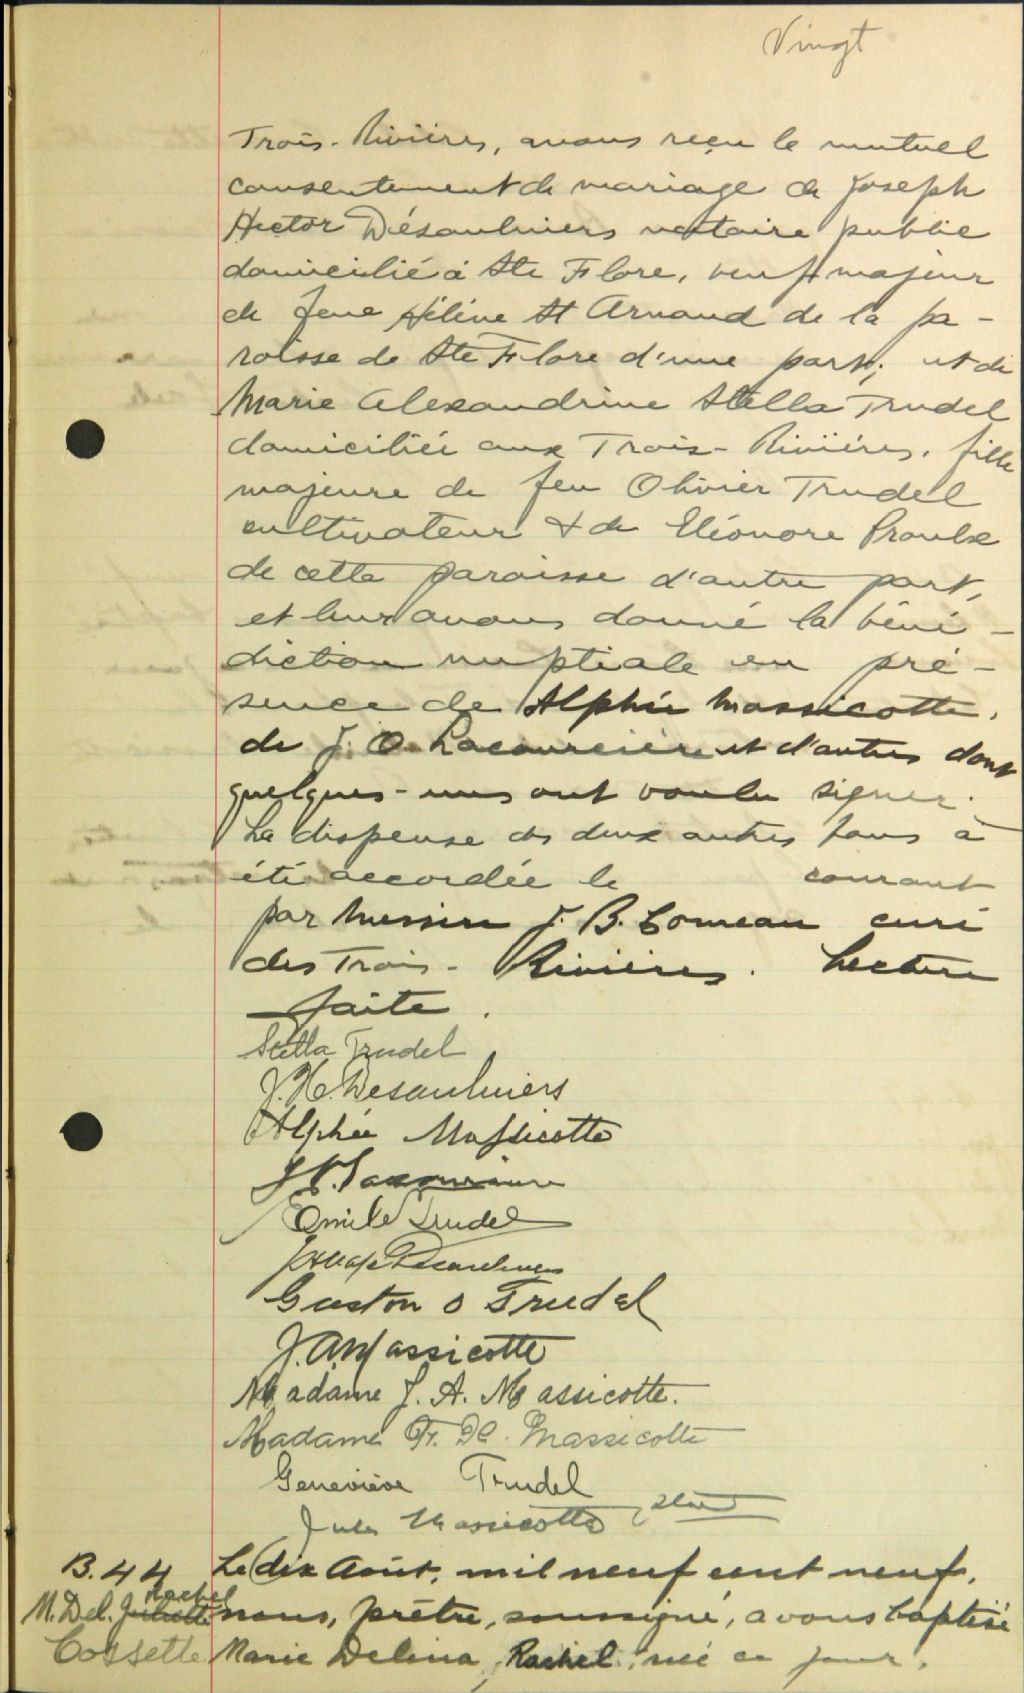 Vingt
Trois-Rivières, avons reçu le mutuel
consentement de mariage de Joseph
Hector Désaulniers notaire public
domicilié à Ste Flore, veuf majeur
de feue Hélène St Arnaud de la pa-
roisse de Ste Flore d'une part; et de
Marie Alexandrine Stella Trudel
domiciliée aux Trois-Rivières, fille
majeure de feu Olivier Trudel
cultivateur & de Eléonore Proulx
de cette paroisse d'autre part,
et leur avons donné la béné-
diction nuptiale en pré-
sence de Alphée Massicotte,
de J. O. Lacourcière et d'autres dont
quelques-uns ont voulu signer.
La dispense des deux autres bans a
été accordée le courant
par Messire J. B. Comeau curé
des Trois-Rivières. Lecture
faite.
Stella Trudel
J. H. Desaulniers
Alphée Massicotte
Emile Trudel
Desaulniers
Gaston O Trudel
J. A. Massicotte
Madame J. A. Massicotte.
Madame Massicotte
Geneviève Trudel
Jules Massicotte ptre
B. 44 Le dix Août, mil neuf cent neuf,
Rachel
M. Del. Juliette nous, prêtre, soussigné, avons baptisé
Cossette Marie Delina, Rachel, née ce jour,